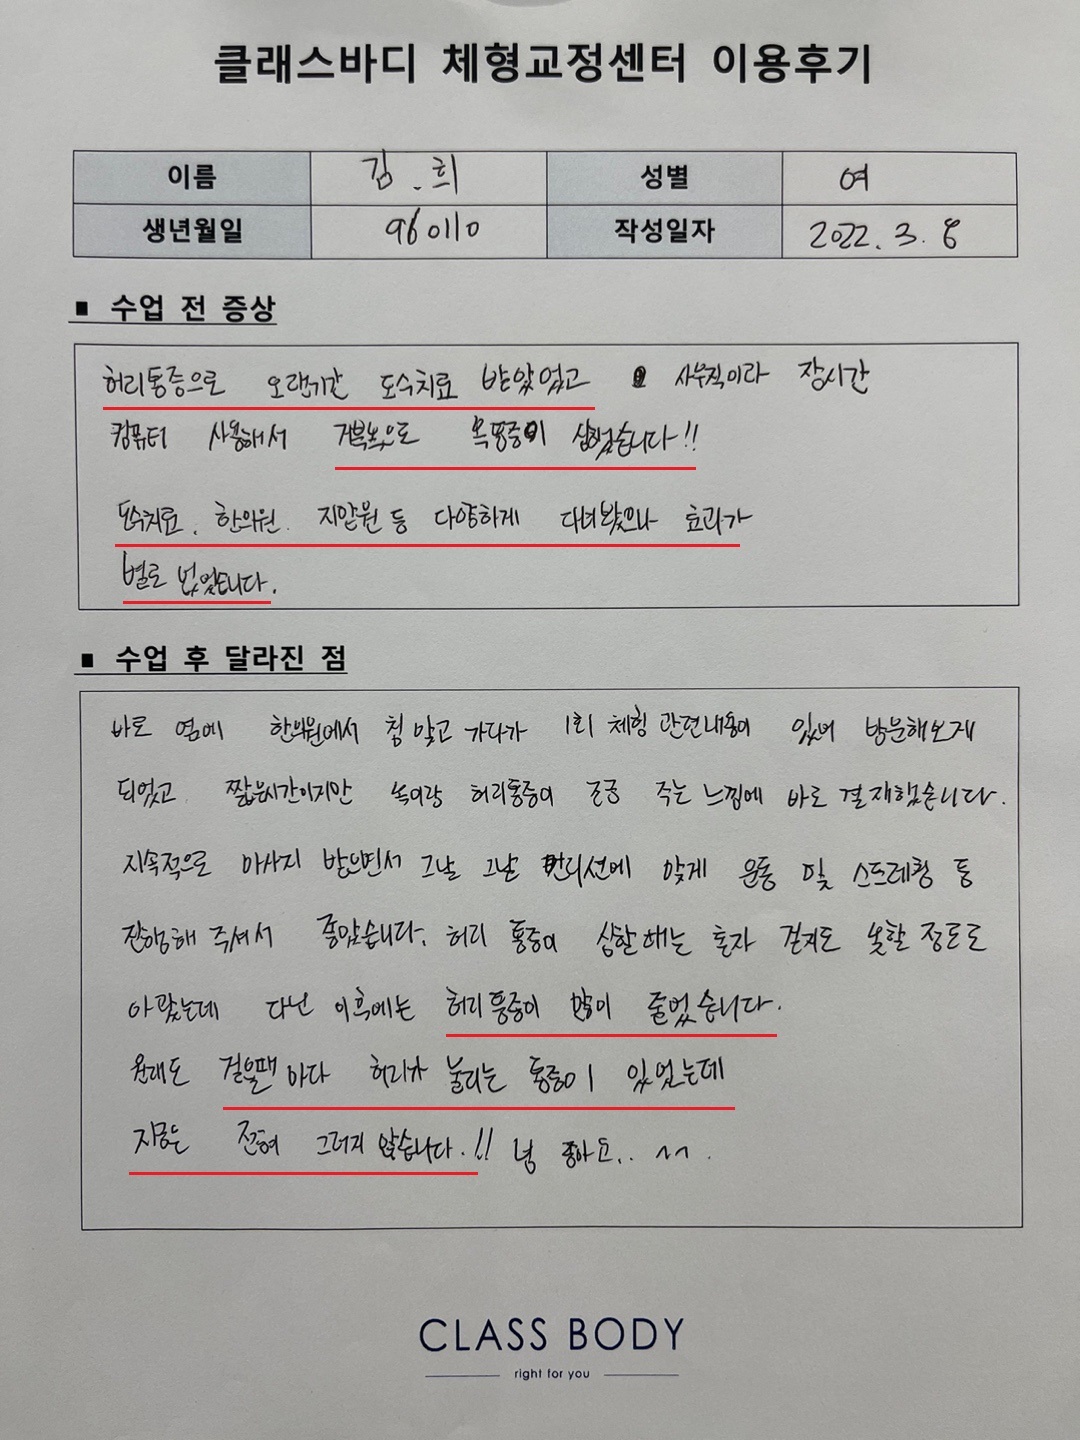 클래스바디 체형교정센터 이용후기
이름 김.희 성별 여
생년월일 960110 작성일자 2022.3.8
■ 수업 전 증상
허리통증으로 오랜기간 도수치료 받았었고 사무직이라 장시간
컴퓨터 사용해서 거북목으로 목통증이 심했습니다!!
도수치료, 한의원, 지압원 등 다양하게 다녀봤으나 효과가
별로 없었습니다.
■ 수업 후 달라진 점
바로 옆에 한의원에서 침 맞고 가다가 1회 체험 관련내용이 있어 방문해보게
되었고 짧은시간이지만 목이랑 허리통증이 조금 주는 느낌에 바로 결재했습니다.
지속적으로 마사지 받으면서 그날 그날 컨디션에 맞게 운동 및 스트레칭 등
진행해 주셔서 좋았습니다. 허리 통증이 심할때는 혼자 걷지도 못할 정도로
아팠는데 다닌 이후에는 허리통증이 많이 줄었습니다.
원래도 걸을때 마다 허리가 눌리는 통증이 있었는데
지금은 전혀 그러지 않습니다.!! 넘 좋아요.. ^^.
CLASS BODY
right for you